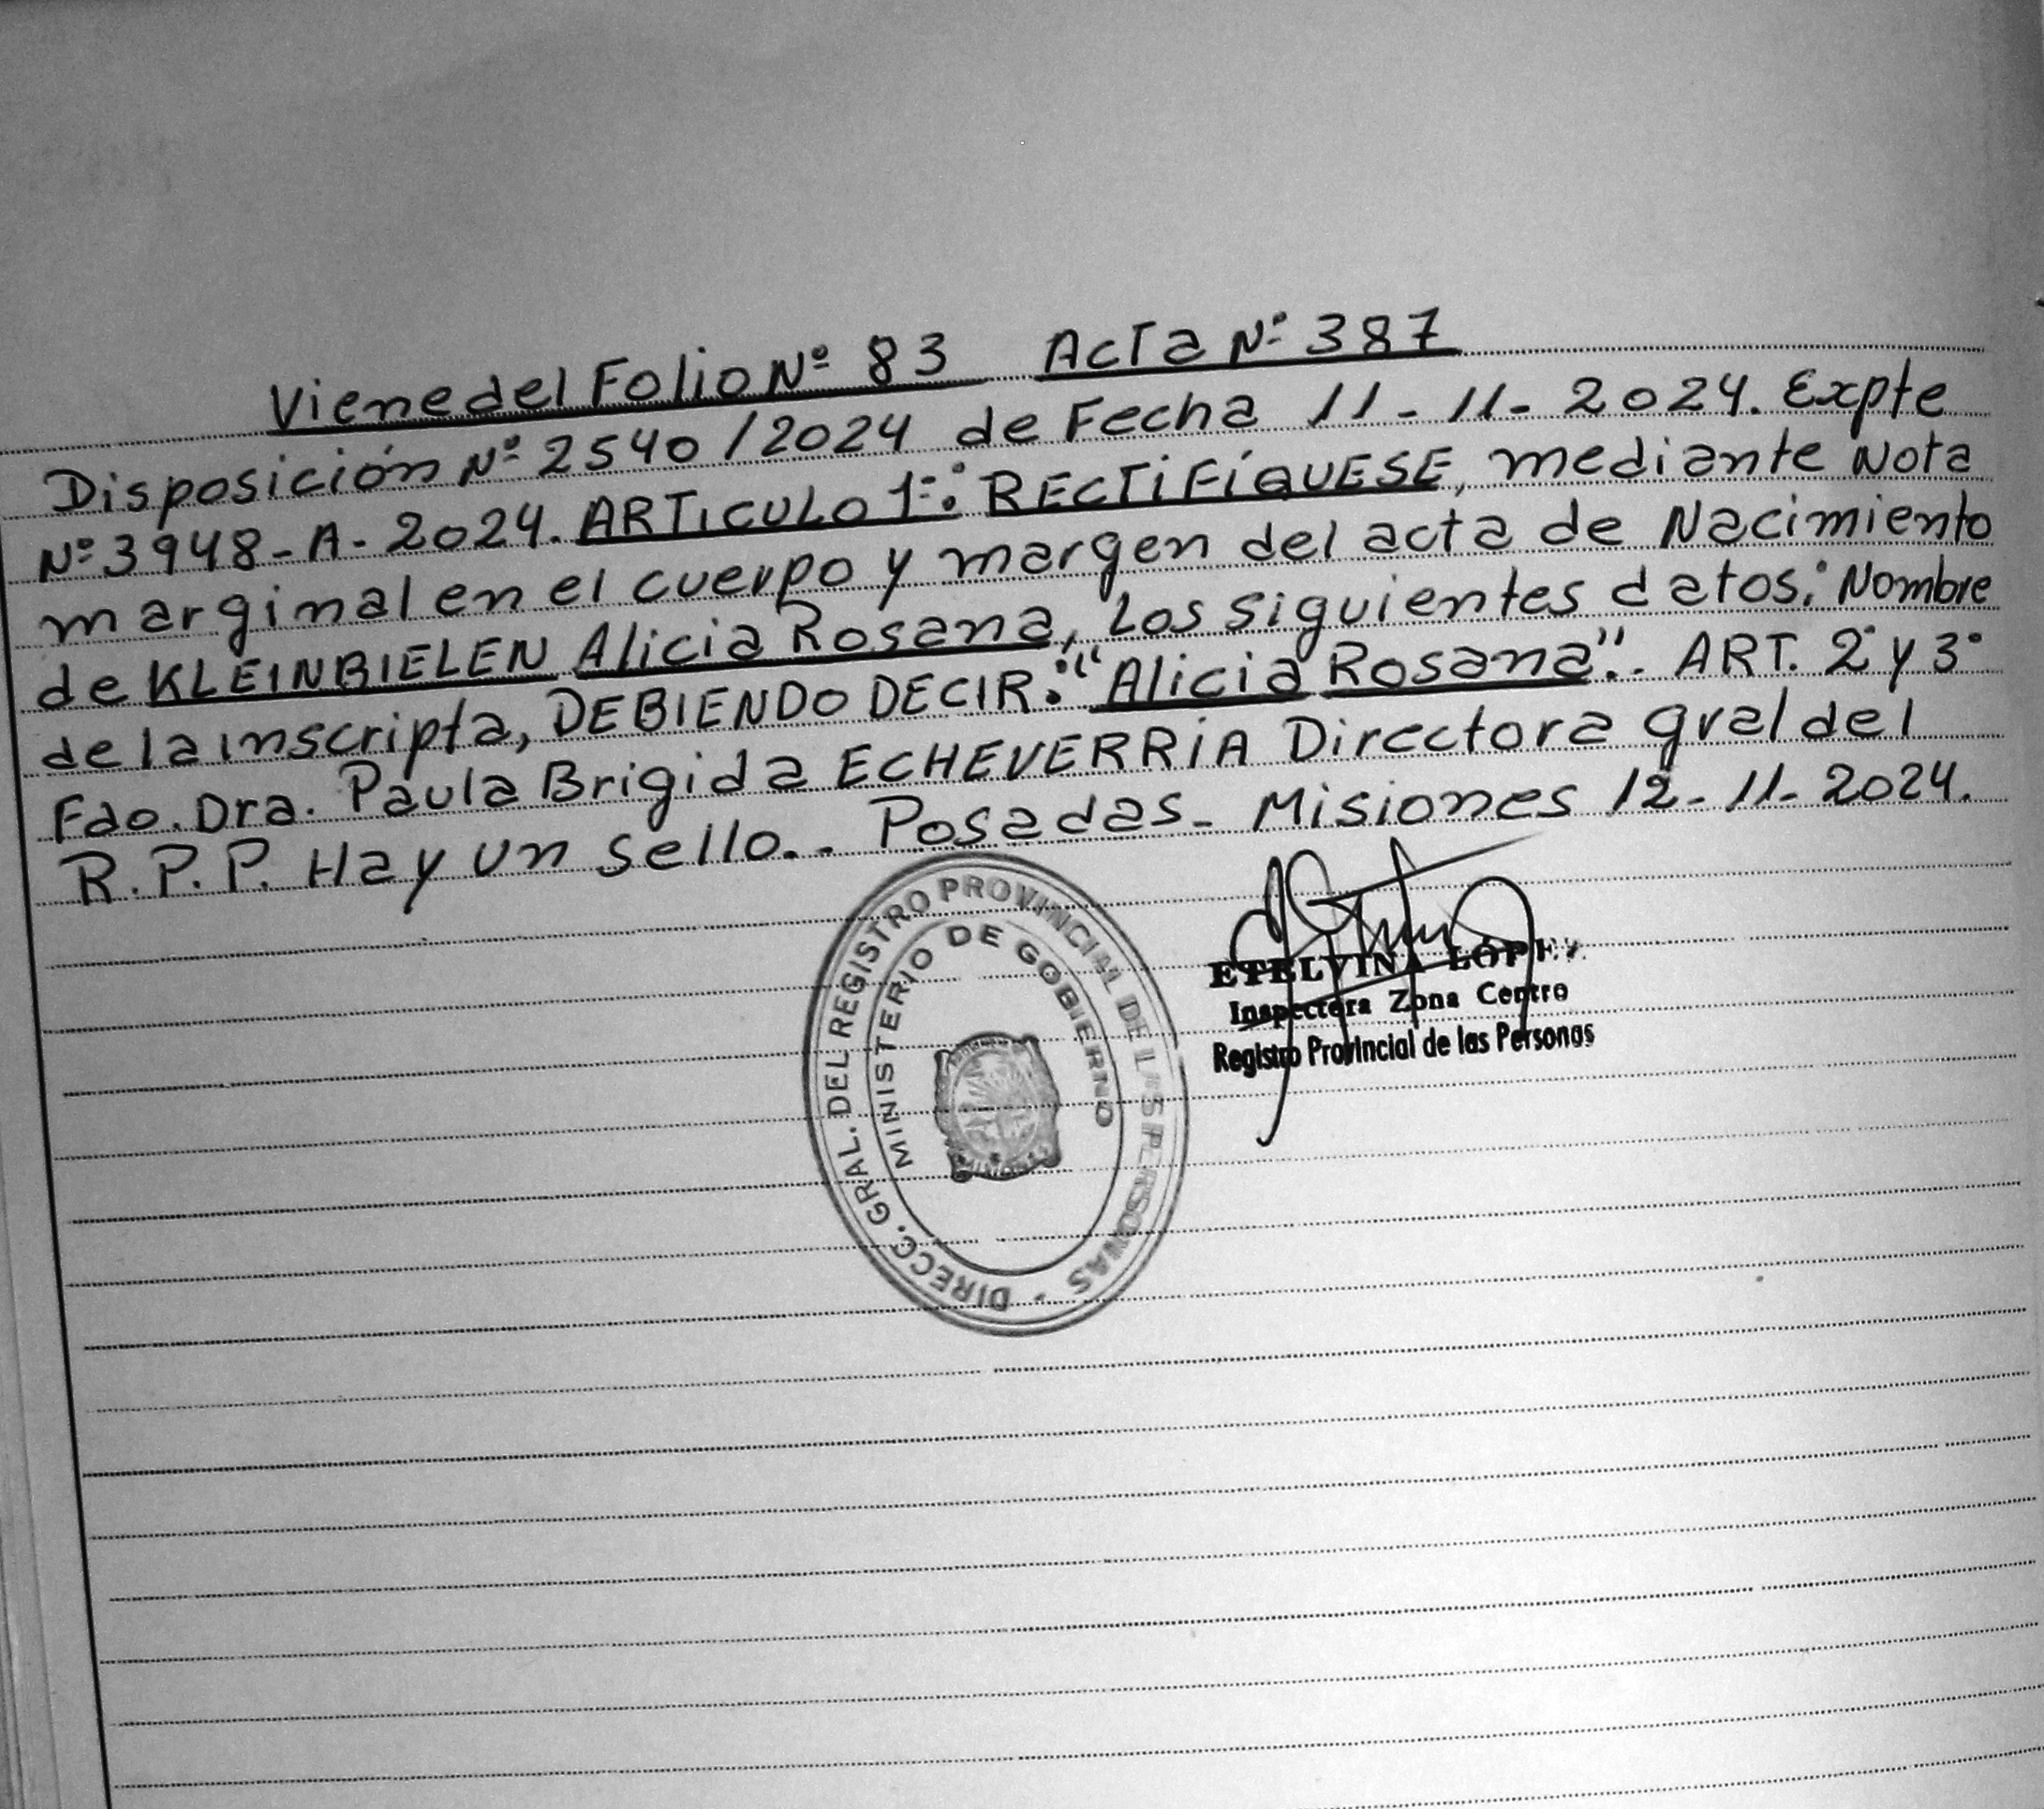 Viene del Folio Nº 83 Acta Nº 387
Disposición Nº 2540/2024 de Fecha 11-11-2024. Expte
Nº 3948-A-2024. ARTICULO 1º: RECTIFÍQUESE, mediante Nota
marginal en el cuerpo y margen del acta de Nacimiento
de KLEINBIELEN Alicia Rosana, Los siguientes datos: Nombre
de la inscripta, DEBIENDO DECIR: "Alicia Rosana". ART. 2º y 3º
Fdo. Dra. Paula Brigida ECHEVERRIA Directora gral del
R.P.P. Hay un sello.. Posadas- Misiones 12-11-2024.
DIRECC. GRAL. DEL REGISTRO PROVINCIAL DE LAS PERSONAS
MINISTERIO DE GOBIERNO
ETELVINA LÓPEZ
Inspectora Zona Centro
Registro Provincial de las Personas